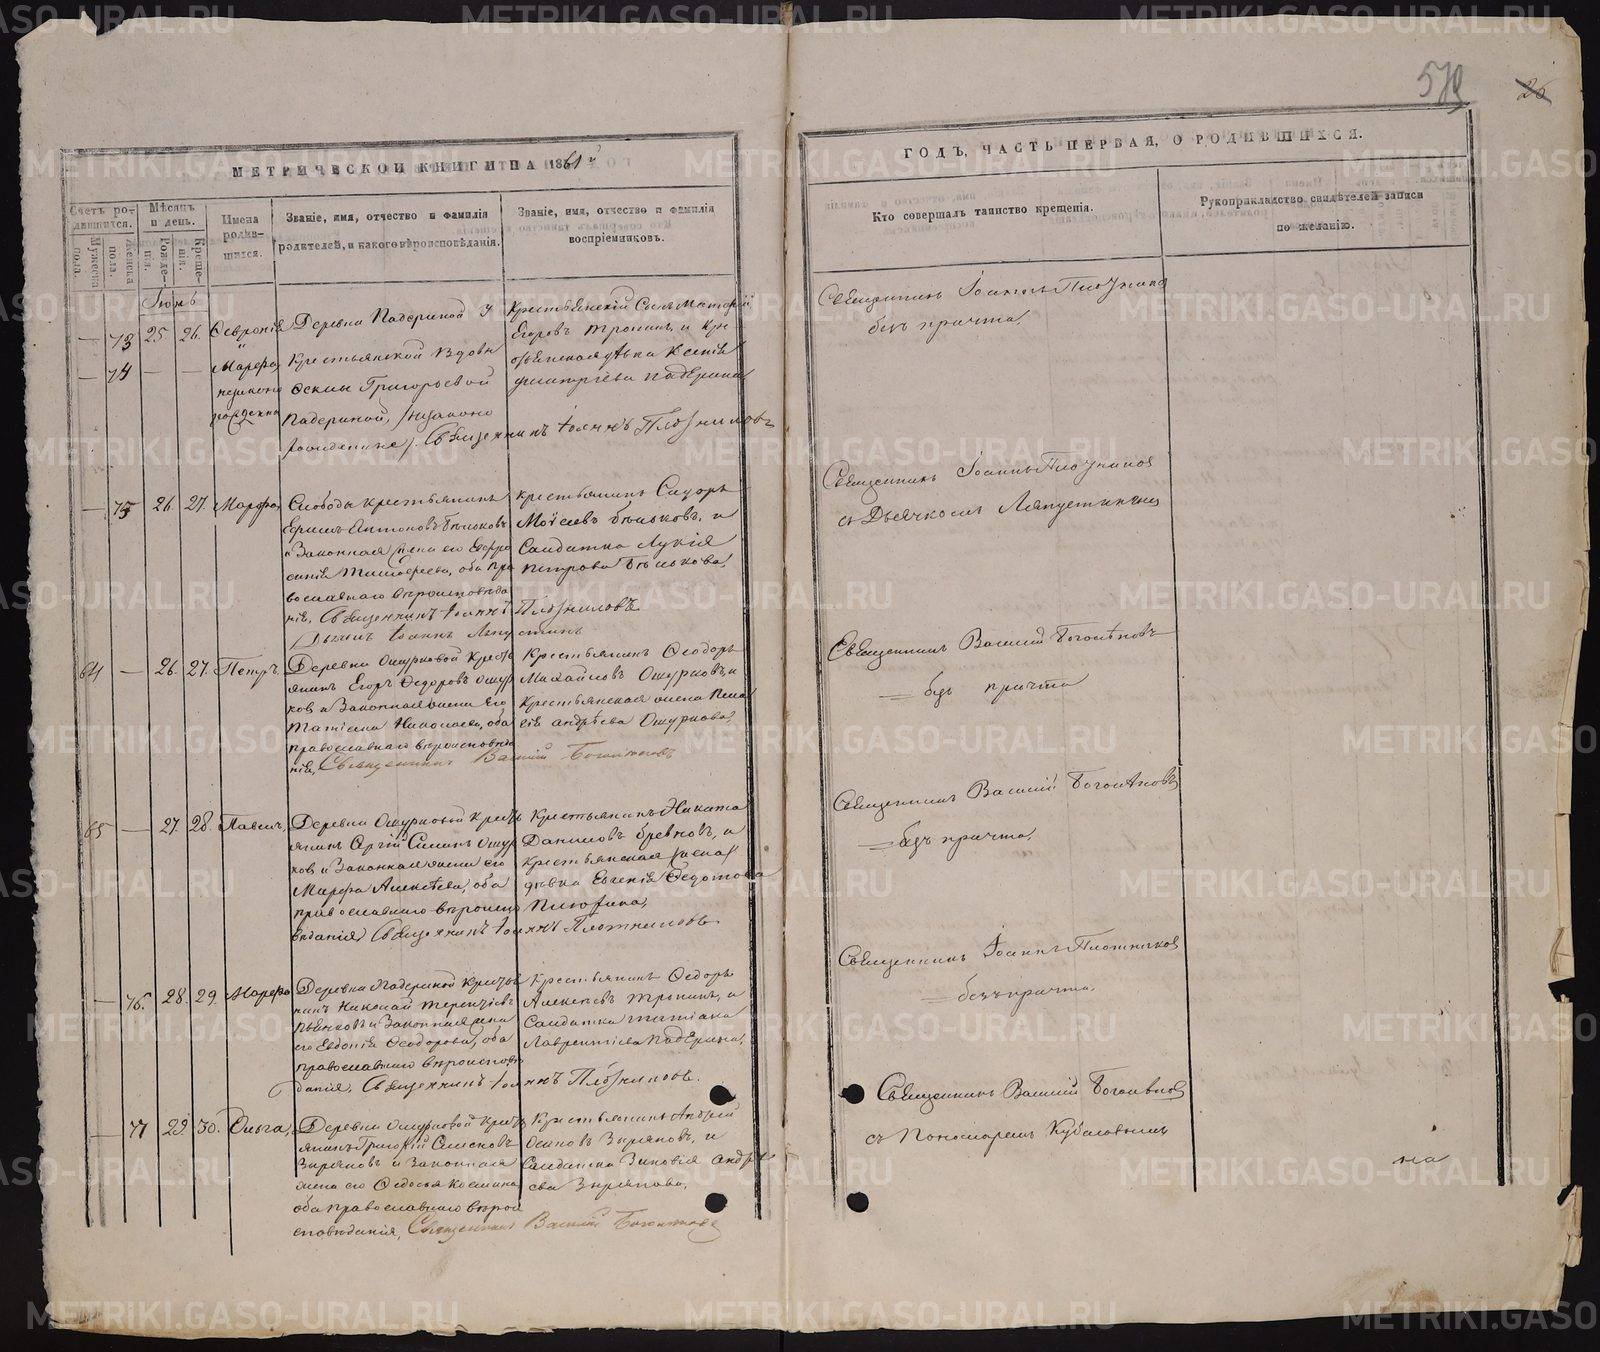 579
26
МЕТРИЧЕСКОЙ КНИГИ НА 1861й
Счетъ родившихся.
Мужеска пола.
Женска пола.
Мѣсяцъ и день.
Рожденія.
Крещенія.
Имена родившихся.
Званіе, имя, отчество и фамилія родителей, и какого вѣроисповѣданія.
Званіе, имя, отчество и фамилія воспріемниковъ.
ГОДЪ, ЧАСТЬ ПЕРВАЯ, О РОДИВШИХСЯ.
Кто совершалъ таинство крещенія.
Рукоприкладство свидѣтелей записи по желанію.
Іюнь
73 25 26. Февронія
и
74 Марѳа,
незаконо
рожденныя
Деревни Падериной у
Крестьянской вдовы
Григорьевой
Падериной, /незаконо
рожденные/. Священникъ Іоаннъ Плотниковъ
Егоровъ Тропинъ, и Кре
стьянская дѣвка Ксенія
Дмитріева Падерина
Священникъ Іоаннъ Плотниковъ
безъ причта.
75 26. 27. Марѳа,
Слободы крестьянинъ
Ефимъ Антоновъ Бѣльковъ
и Законная жена его Евфро
синія Тимоѳеева, оба пра
вославнаго вѣроисповѣда
нія, Священникъ Іоаннъ Плотниковъ
Дьячекъ Іоаннъ Ляпустинъ
Крестьянинъ Сидоръ
Моѵсеевъ Бѣльковъ, и
Солдатка Лукія
Петрова Бѣлькова,
Священникъ Іоаннъ Плотниковъ
съ Дьячкомъ Ляпустинымъ
64 — 26. 27. Петръ.
Деревни Ошурковой Кресть
янинъ Егоръ Ѳедоровъ Ошур
ковъ и Законная жена Его
Татіана Николаева, оба
православнаго вѣроисповѣда
нія, Священникъ Василій Боголѣповъ
Крестьянинъ Ѳеодоръ
Михайловъ Ошурковъ, и
Крестьянская жена Пела
гія Андрѣева Ошуркова,
Священникъ Василій Боголѣповъ
безъ причта
65 — 27. 28. Павелъ,
Деревни Ошурковой Кресть
янинъ Сергій Симинъ Ошур
ковъ и Законная жена его
Марѳа Алексѣева, оба
православнаго вѣроиспо
вѣданія, Священникъ Іоаннъ Плотниковъ
Крестьянинъ Никита
Даниловъ Бревновъ, и
Крестьянская /жена/
дѣвка Евгенія Ѳедотова
Священникъ Василій Боголѣповъ
безъ причта,
— 76. 28. 29. Марѳа
Деревни Падериной Крестья
нинъ Николай Терентьевъ
и Законная жена
его Евдокія Ѳеодорова, оба
православнаго вѣроисповѣ
данія, Священникъ Іоаннъ Плотниковъ.
Крестьянинъ Ѳедоръ
Алексѣевъ Тропинъ, и
Солдатка Татіана
Лаврентіева Падерина,
Священникъ Іоаннъ Плотниковъ
безъ причта.
— 77 29 30. Ольга,
Деревни Ошурковой Кресть
янинъ Григорій Семеновъ
Зыряновъ и Законная
жена его Ѳедосья Козмина
оба православнаго вѣрои
сповѣданія, Священникъ Василій Боголѣповъ
Крестьянинъ Андрей
Осиповъ Зыряновъ, и
Солдатка Зиновія Андрѣ
ева Зырянова,
Священникъ Василій Боголѣповъ
съ Пономаремъ
на
METRIKI.GASO-URAL.RU